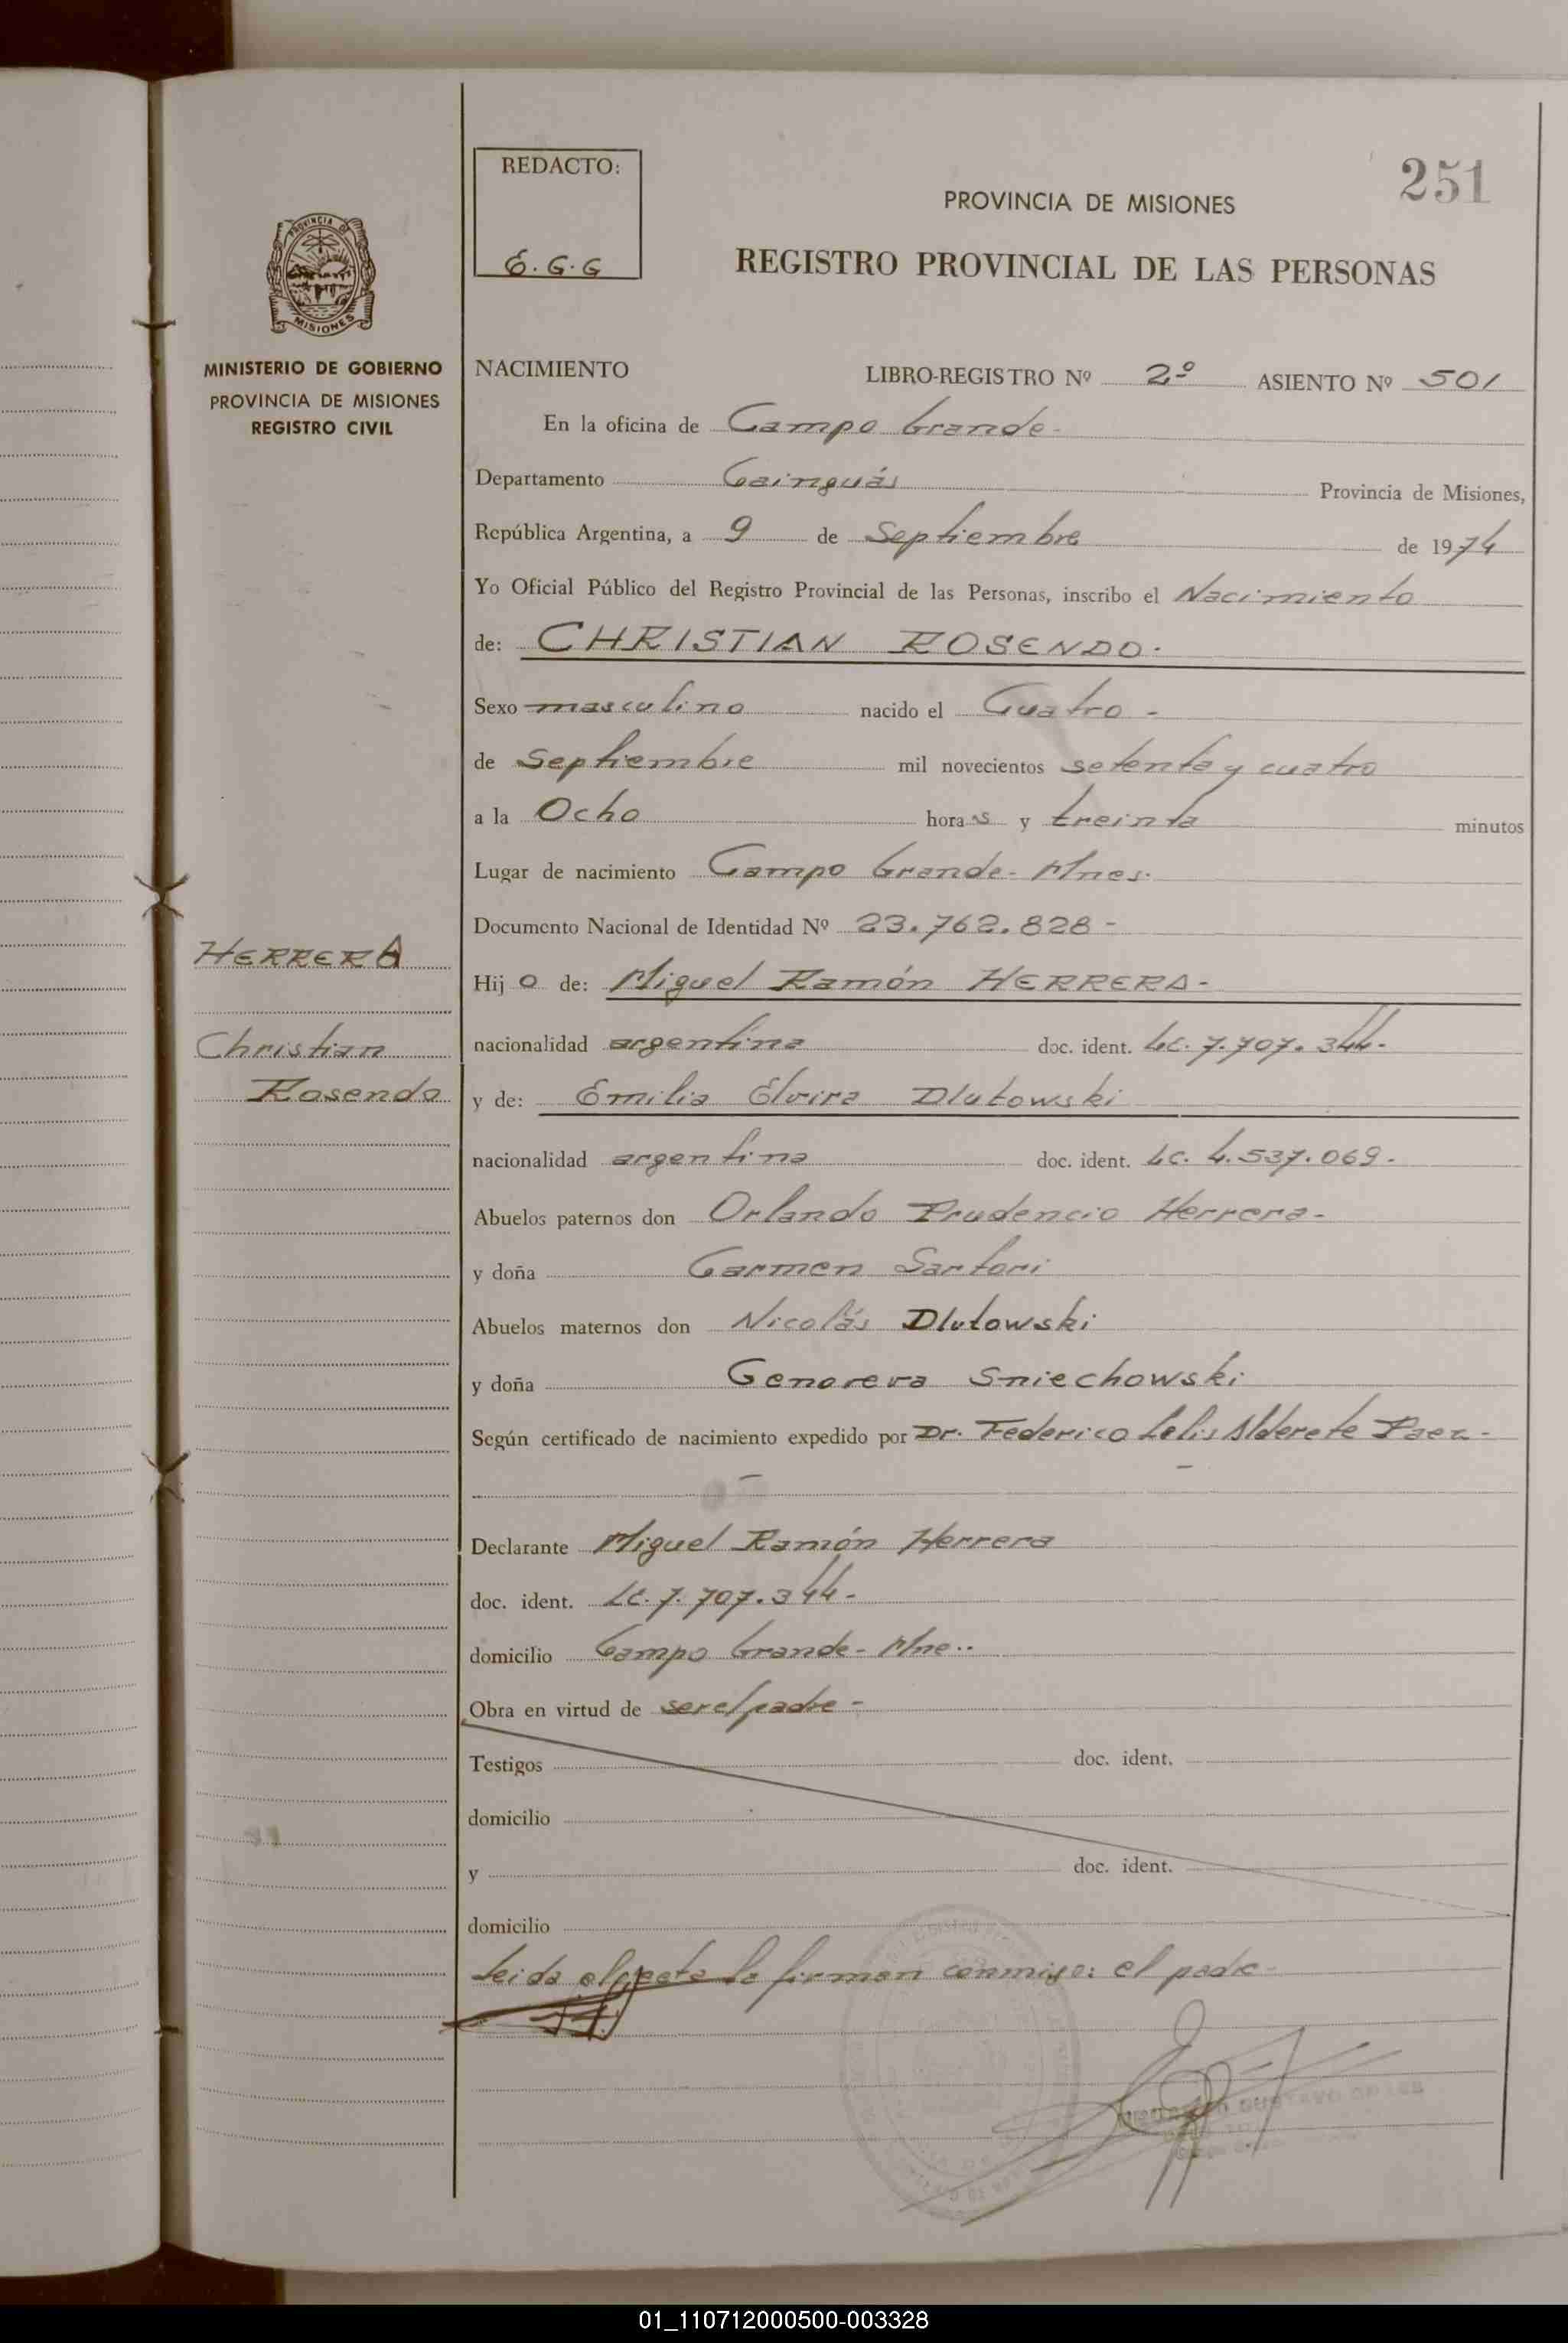 251
REDACTO:
E.G.G
PROVINCIA DE MISIONES
REGISTRO PROVINCIAL DE LAS PERSONAS
PROVINCIA DE
MISIONES
MINISTERIO DE GOBIERNO
PROVINCIA DE MISIONES
REGISTRO CIVIL
NACIMIENTO LIBRO-REGISTRO Nº 2º ASIENTO Nº 501
En la oficina de Campo Grande-
Departamento Cainguás Provincia de Misiones,
República Argentina, a 9 de Septiembre de 1974
Yo Oficial Público del Registro Provincial de las Personas, inscribo el Nacimiento
de: CHRISTIAN ROSENDO.
Sexo masculino nacido el Cuatro -
de Septiembre mil novecientos setenta y cuatro
a la Ocho horas y treinta minutos
Lugar de nacimiento Campo Grande- Mnes.
Documento Nacional de Identidad Nº 23.762.828-
HERRERA
Christian
Rosendo
Hijo de: Miguel Ramón HERRERA-
nacionalidad argentina doc. ident. LE. 7.707.344-
y de: Emilia Elvira Dlutowski
nacionalidad argentina doc. ident. LC. 4.537.069-
Abuelos paternos don Orlando Prudencio Herrera-
y doña Carmen Sartori
Abuelos maternos don Nicolás Dlutowski
y doña Genoveva Sniechowski
Según certificado de nacimiento expedido por Dr. Federico Lelis Alderete Paez-
Declarante Miguel Ramón Herrera
doc. ident. LE. 7.707.344-
domicilio Campo Grande- Mne..
Obra en virtud de ser el padre-
Testigos doc. ident.
domicilio
y doc. ident.
domicilio
Leida el acta la firman conmigo: el padre
01_110712000500-003328